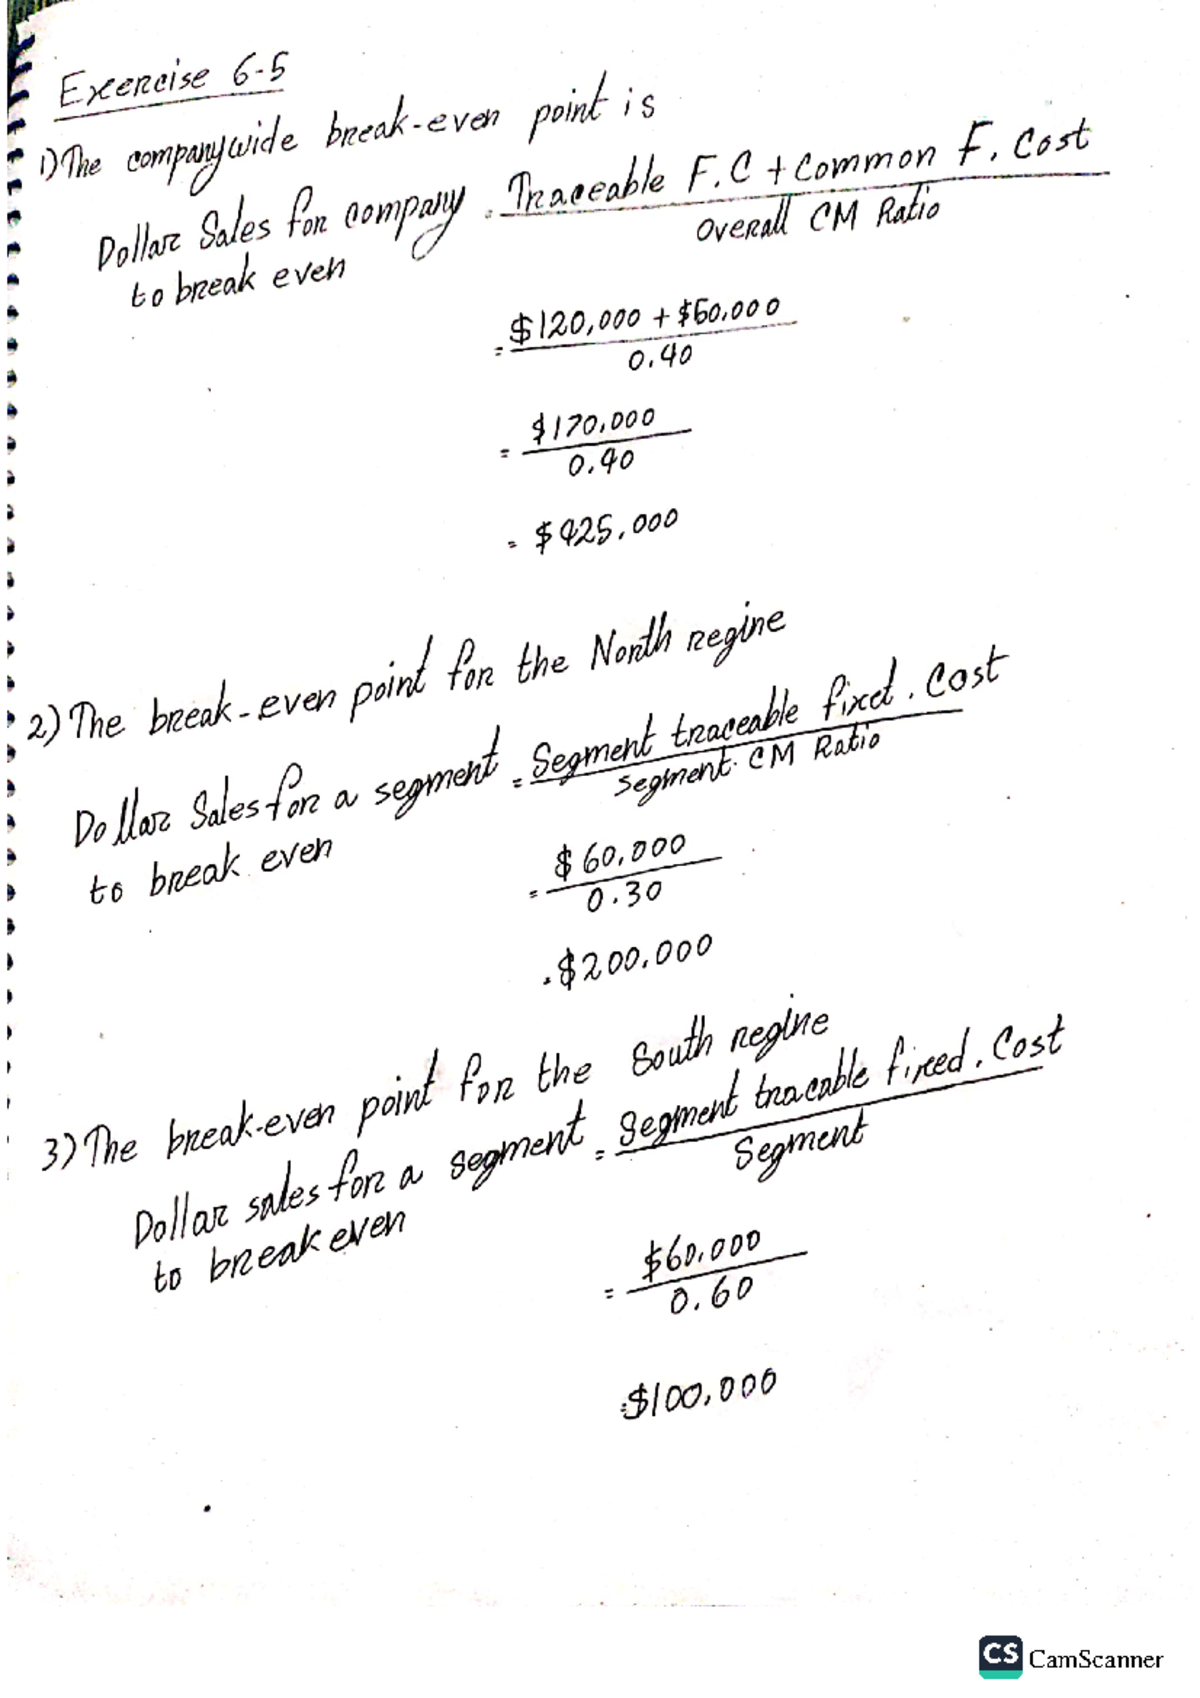 Exercise 6-5
1) The companywide break-even point is
Dollar Sales for company = Traceable F.C + Common F. Cost
to break even
Overall CM Ratio
= $120,000 + $50,000
0.40
= $170,000
0.40
= $425,000
2) The break-even point for the North regine
Dollar Sales for a segment = Segment traceable fixed. Cost
to break even
segment. CM Ratio
= $60,000
0.30
= $200,000
3) The break-even point for the South regine
Dollar sales for a segment = Segment tracable fixeed. Cost
to break even
Segment
= $60,000
0.60
= $100,000
CS CamScanner